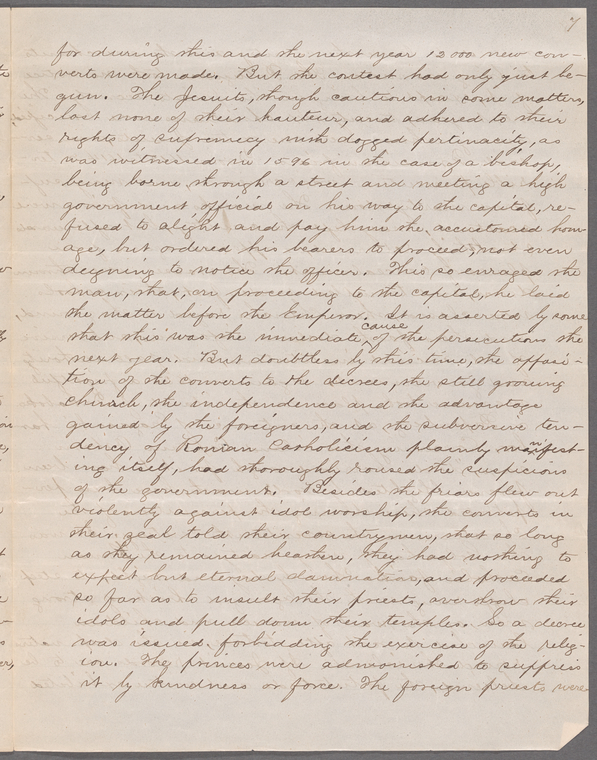 7
for during this and the next year 12000 new con-
verts were made. But the contest had only just be-
gun. The Jesuits, though cautious in some matters,
lost none of their hauteur, and adhered to their
rights of supremecy with dogged pertinacity, as
was witnessed in 1596 in the case of a bishop,
being borne through a street and meeting a high
government official on his way to the capital, re-
fused to alight and pay him the accustomed hom-
age, but ordered his bearers to proceed, not even
deigning to notice the officer. This so enraged the
man, that, on proceeding to the capital, he laid
the matter before the Emperor. It is asserted by some
that this was the immediate cause of the persecutions the
next year. But doubtless by this time, the opposi-
tion of the converts to the decrees, the still growing
church, the independence and the advantage
gained by the foreigners, and the subversive ten-
dency of Roman Catholicism plainly manifest-
ing itself, had thoroughly roused the suspicions
of the government. Besides the friars flew out
violently against idol worship, the converts in
their zeal told their countrymen, that so long
as they remained heathen, they had nothing to
expect but eternal damnation, and proceeded
so far as to insult their priests, overthrow their
idols and pull down their temples. So a decree
was issued forbidding the exercise of the relig-
ion. The princes were admonished to suppress
it by kindness or force. The foreign priests were